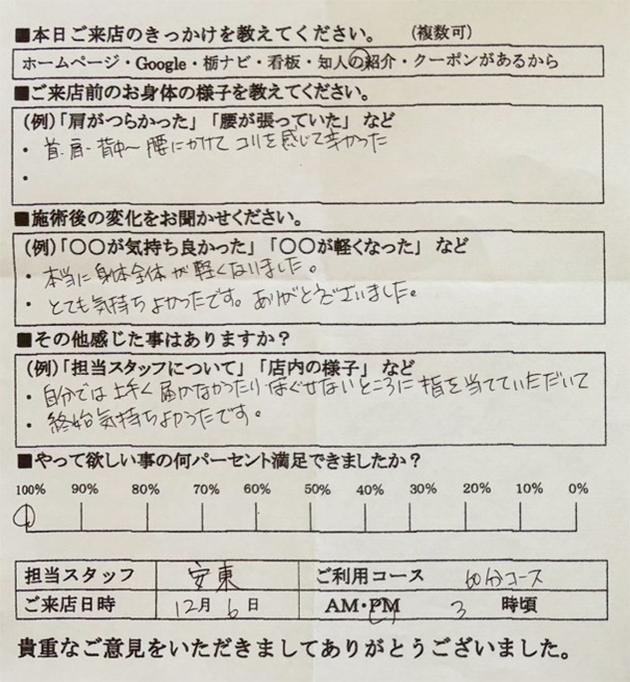 ■本日ご来店のきっかけを教えてください。 (複数可)
ホームページ・Google・栃ナビ・看板・知人の紹介・クーポンがあるから
■ご来店前のお身体の様子を教えてください。
(例)「肩がつらかった」「腰が張っていた」など
・首・肩・背中〜腰にかけてコリを感じて辛かった
・
■施術後の変化をお聞かせください。
(例)「〇〇が気持ち良かった」「〇〇が軽くなった」など
・本当に身体全体が軽くなりました。
・とても気持ちよかったです。ありがとうございました。
■その他感じた事はありますか?
(例)「担当スタッフについて」「店内の様子」など
・自分では上手く届かなかったりほぐせないところに指を当てていただいて
・終始気持ちよかったです。
■やって欲しい事の何パーセント満足できましたか?
100% 90% 80% 70% 60% 50% 40% 30% 20% 10% 0%
担当スタッフ 安東 ご利用コース 60分コース
ご来店日時 12月6日 AM・PM 3時頃
貴重なご意見をいただきましてありがとうございました。